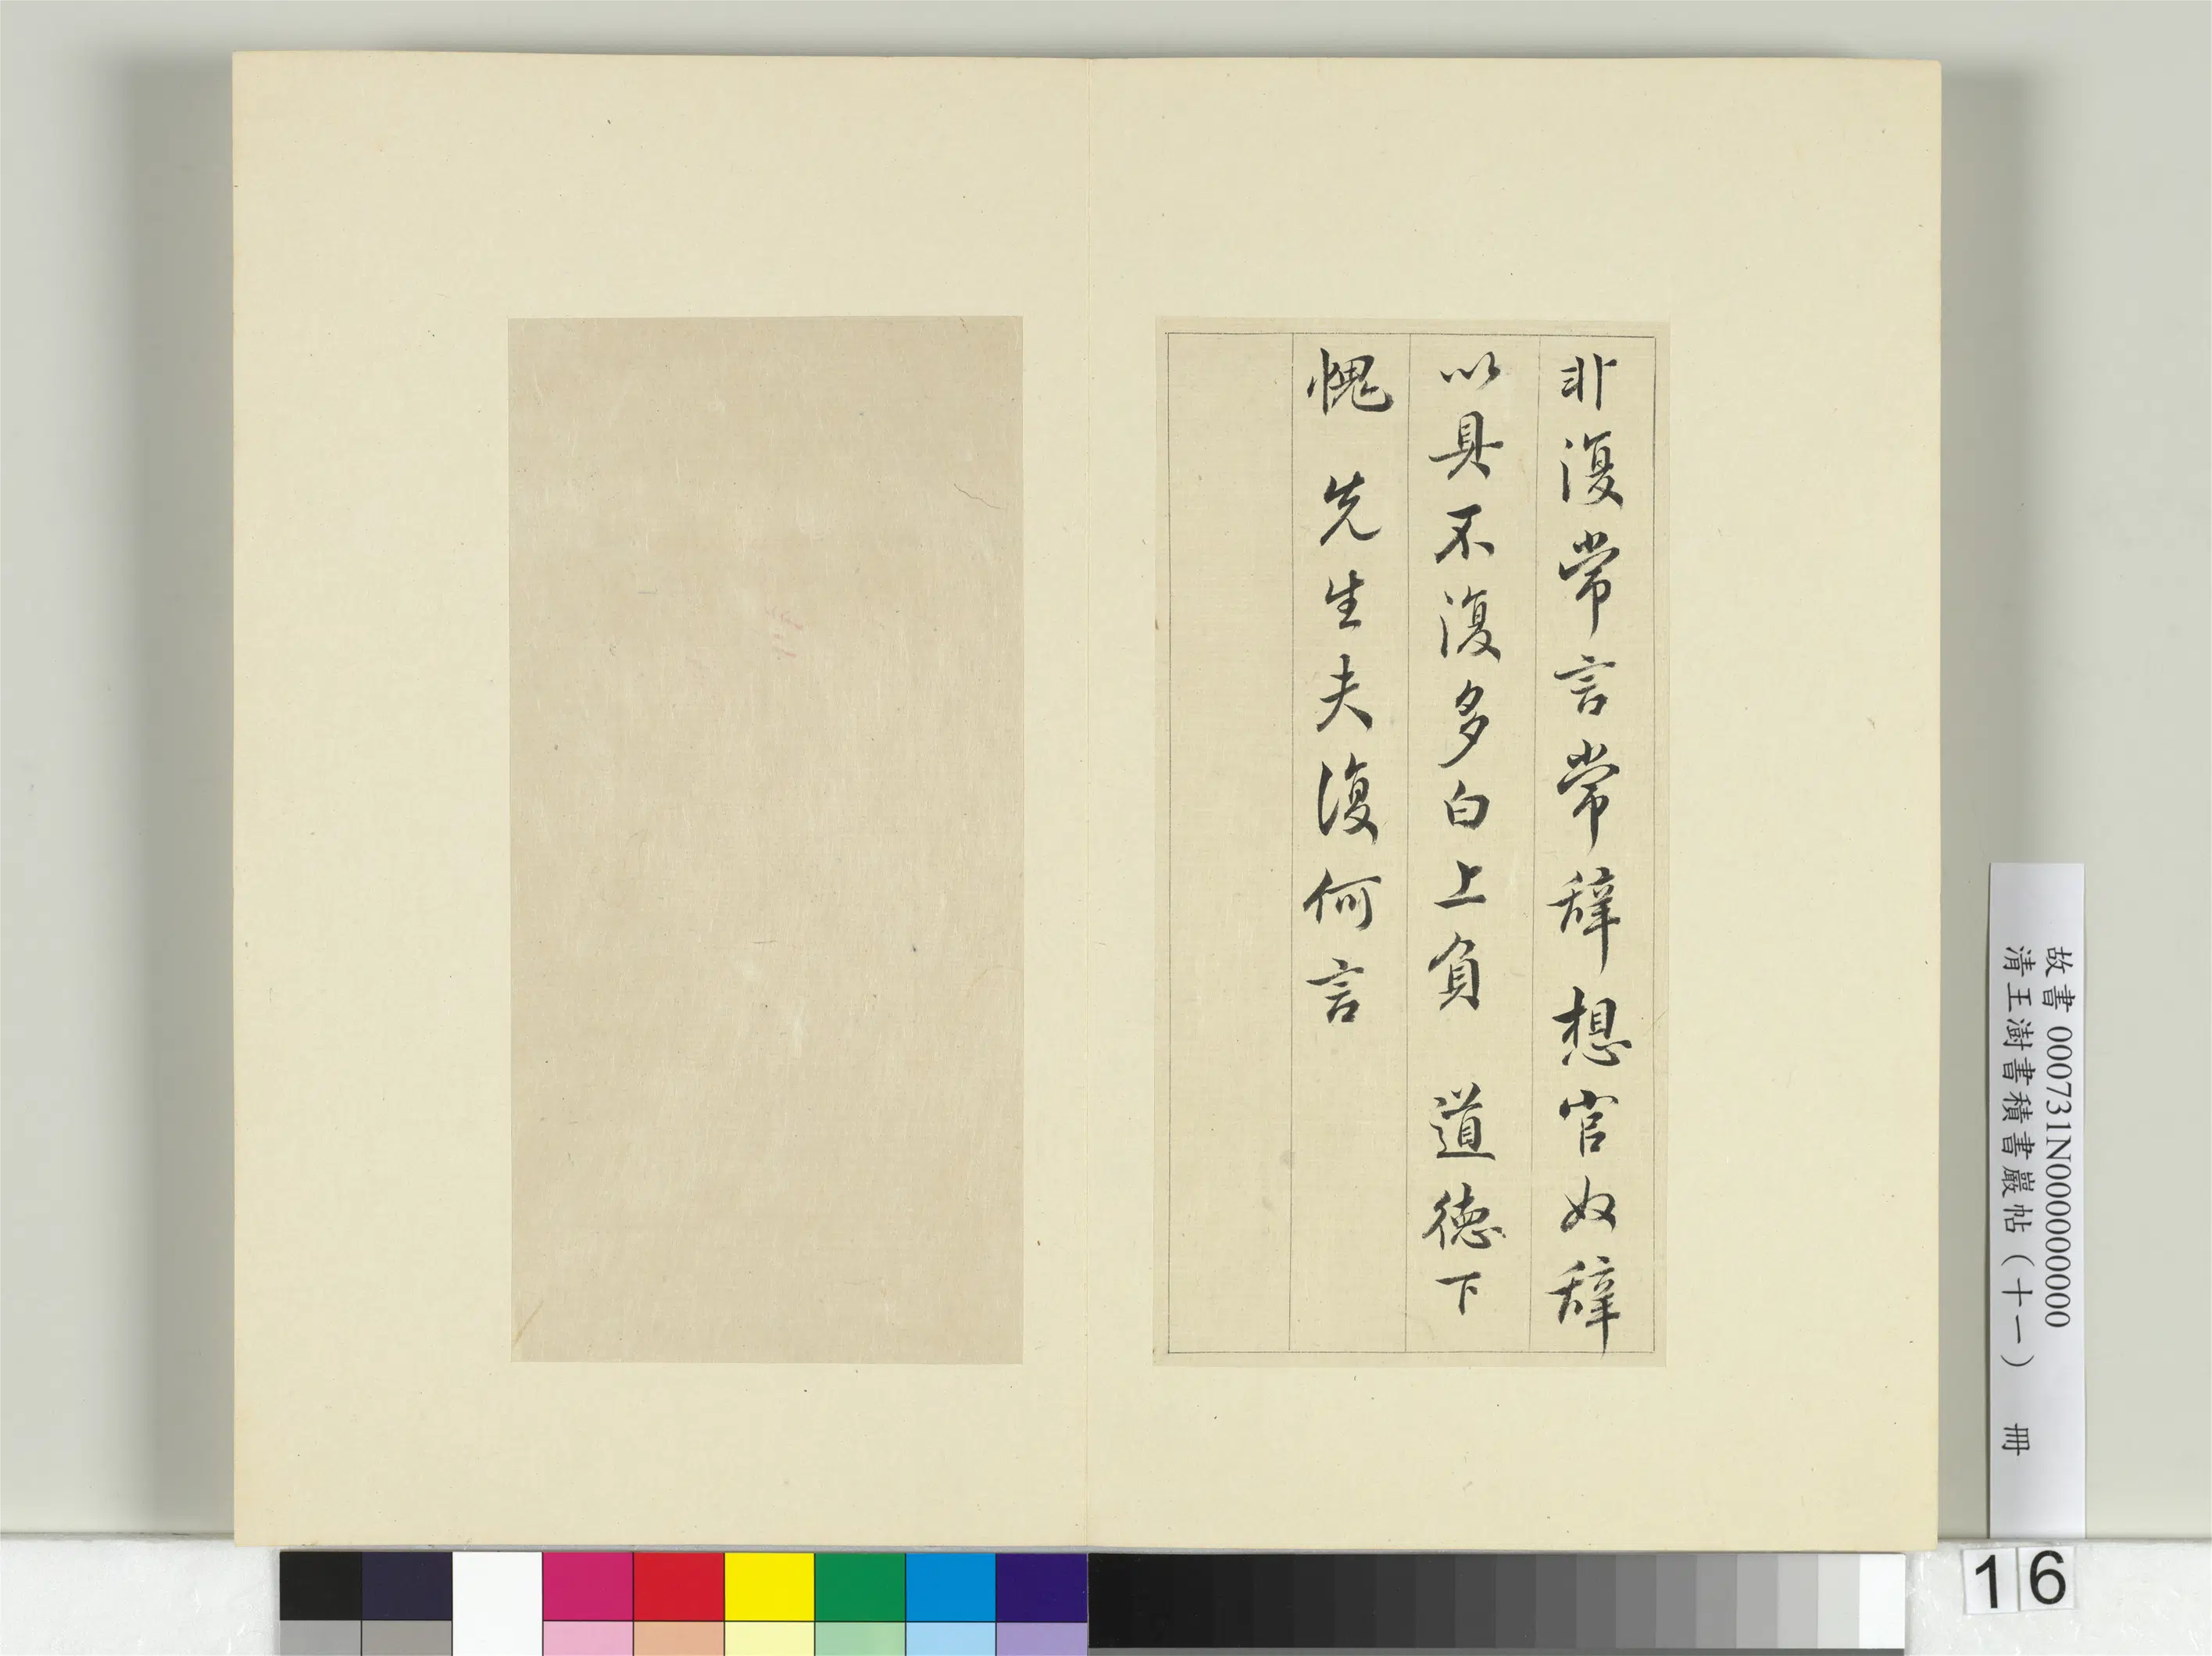 非復常言常辭想官奴辭
以具不復多白上負　道德下
愧　先生夫復何言
故書 000731N000000000
清王澍書積書巖帖（十一）　冊
16